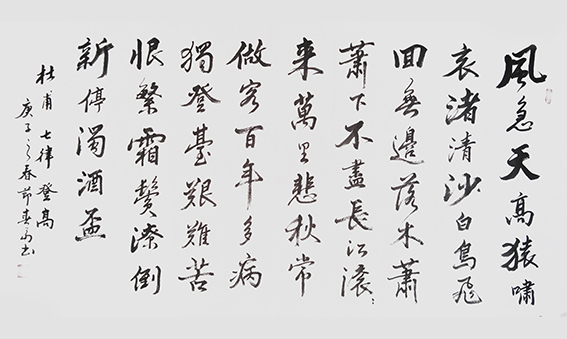 風急天高猿嘯
哀渚清沙白鳥飛
囬無邊落木蕭
蕭下不盡長江滚〻
来萬里悲秋常
做客百年多病
獨登臺艱難苦
恨繁霜鬢潦倒
新停濁酒盃
杜甫七律登高
庚子之春節書